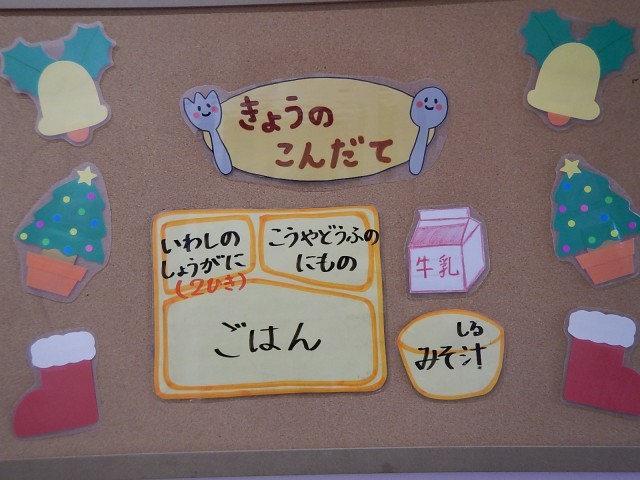 きょうの
こんだて
いわしの
しょうがに
(2ひき)
こうやどうふの
にもの
ごはん
牛乳
しる
みそ汁